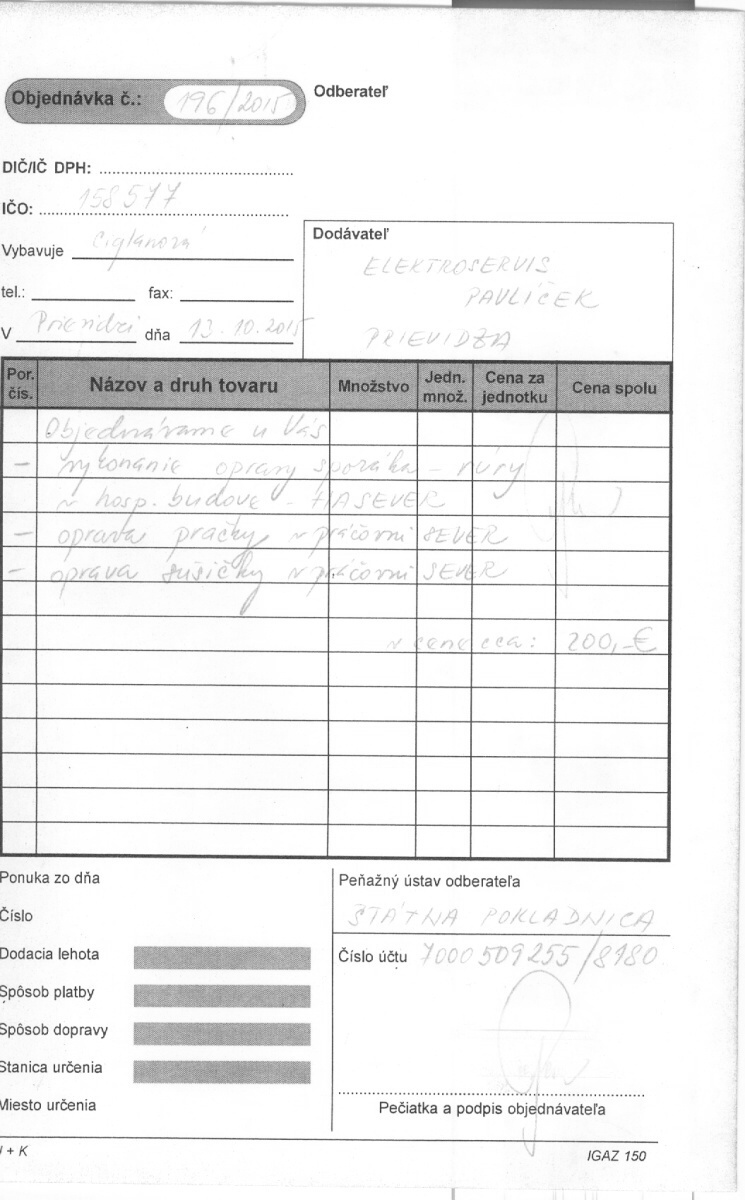 Objednávka č.: 196/2015
Odberateľ
DIČ/IČ DPH:
IČO: 158577
Vybavuje Ciglanová
tel.: fax:
V Prievidzi dňa 13.10.2015
Dodávateľ
ELEKTROSERVIS
PAVLÍČEK
PRIEVIDZA
Por. čís. Názov a druh tovaru Množstvo Jedn. množ. Cena za jednotku Cena spolu
Objednávame u Vás
– vykonanie opravy sporáka – rúry
v hosp. budove - SEVER
– oprava pračky v práčovni SEVER
– oprava sušičky v práčovni SEVER
v cene cca: 200,-€
Ponuka zo dňa
Číslo
Dodacia lehota
Spôsob platby
Spôsob dopravy
Stanica určenia
Miesto určenia
Peňažný ústav odberateľa
ŠTÁTNA POKLADNICA
Číslo účtu 7000509255/8180
Pečiatka a podpis objednávateľa
+ K
IGAZ 150